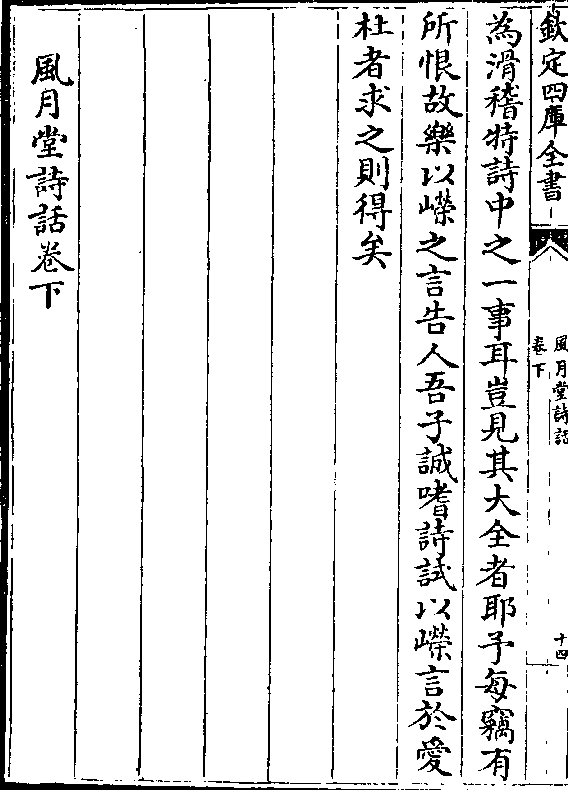 欽定四庫全書
風月堂詩話
卷下
十四
為滑稽特詩中之一事耳豈見其大全者耶予每竊有
所恨故樂以嶸之言告人吾子誠嗜詩試以嶸言於愛
杜者求之則得矣
風月堂詩話卷下